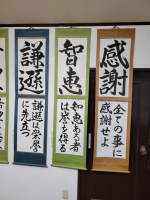 感謝
全ての事に
感謝せよ
智恵
知恵ある者
は誉を得る
謙遜
謙遜は栄誉
に先立つ